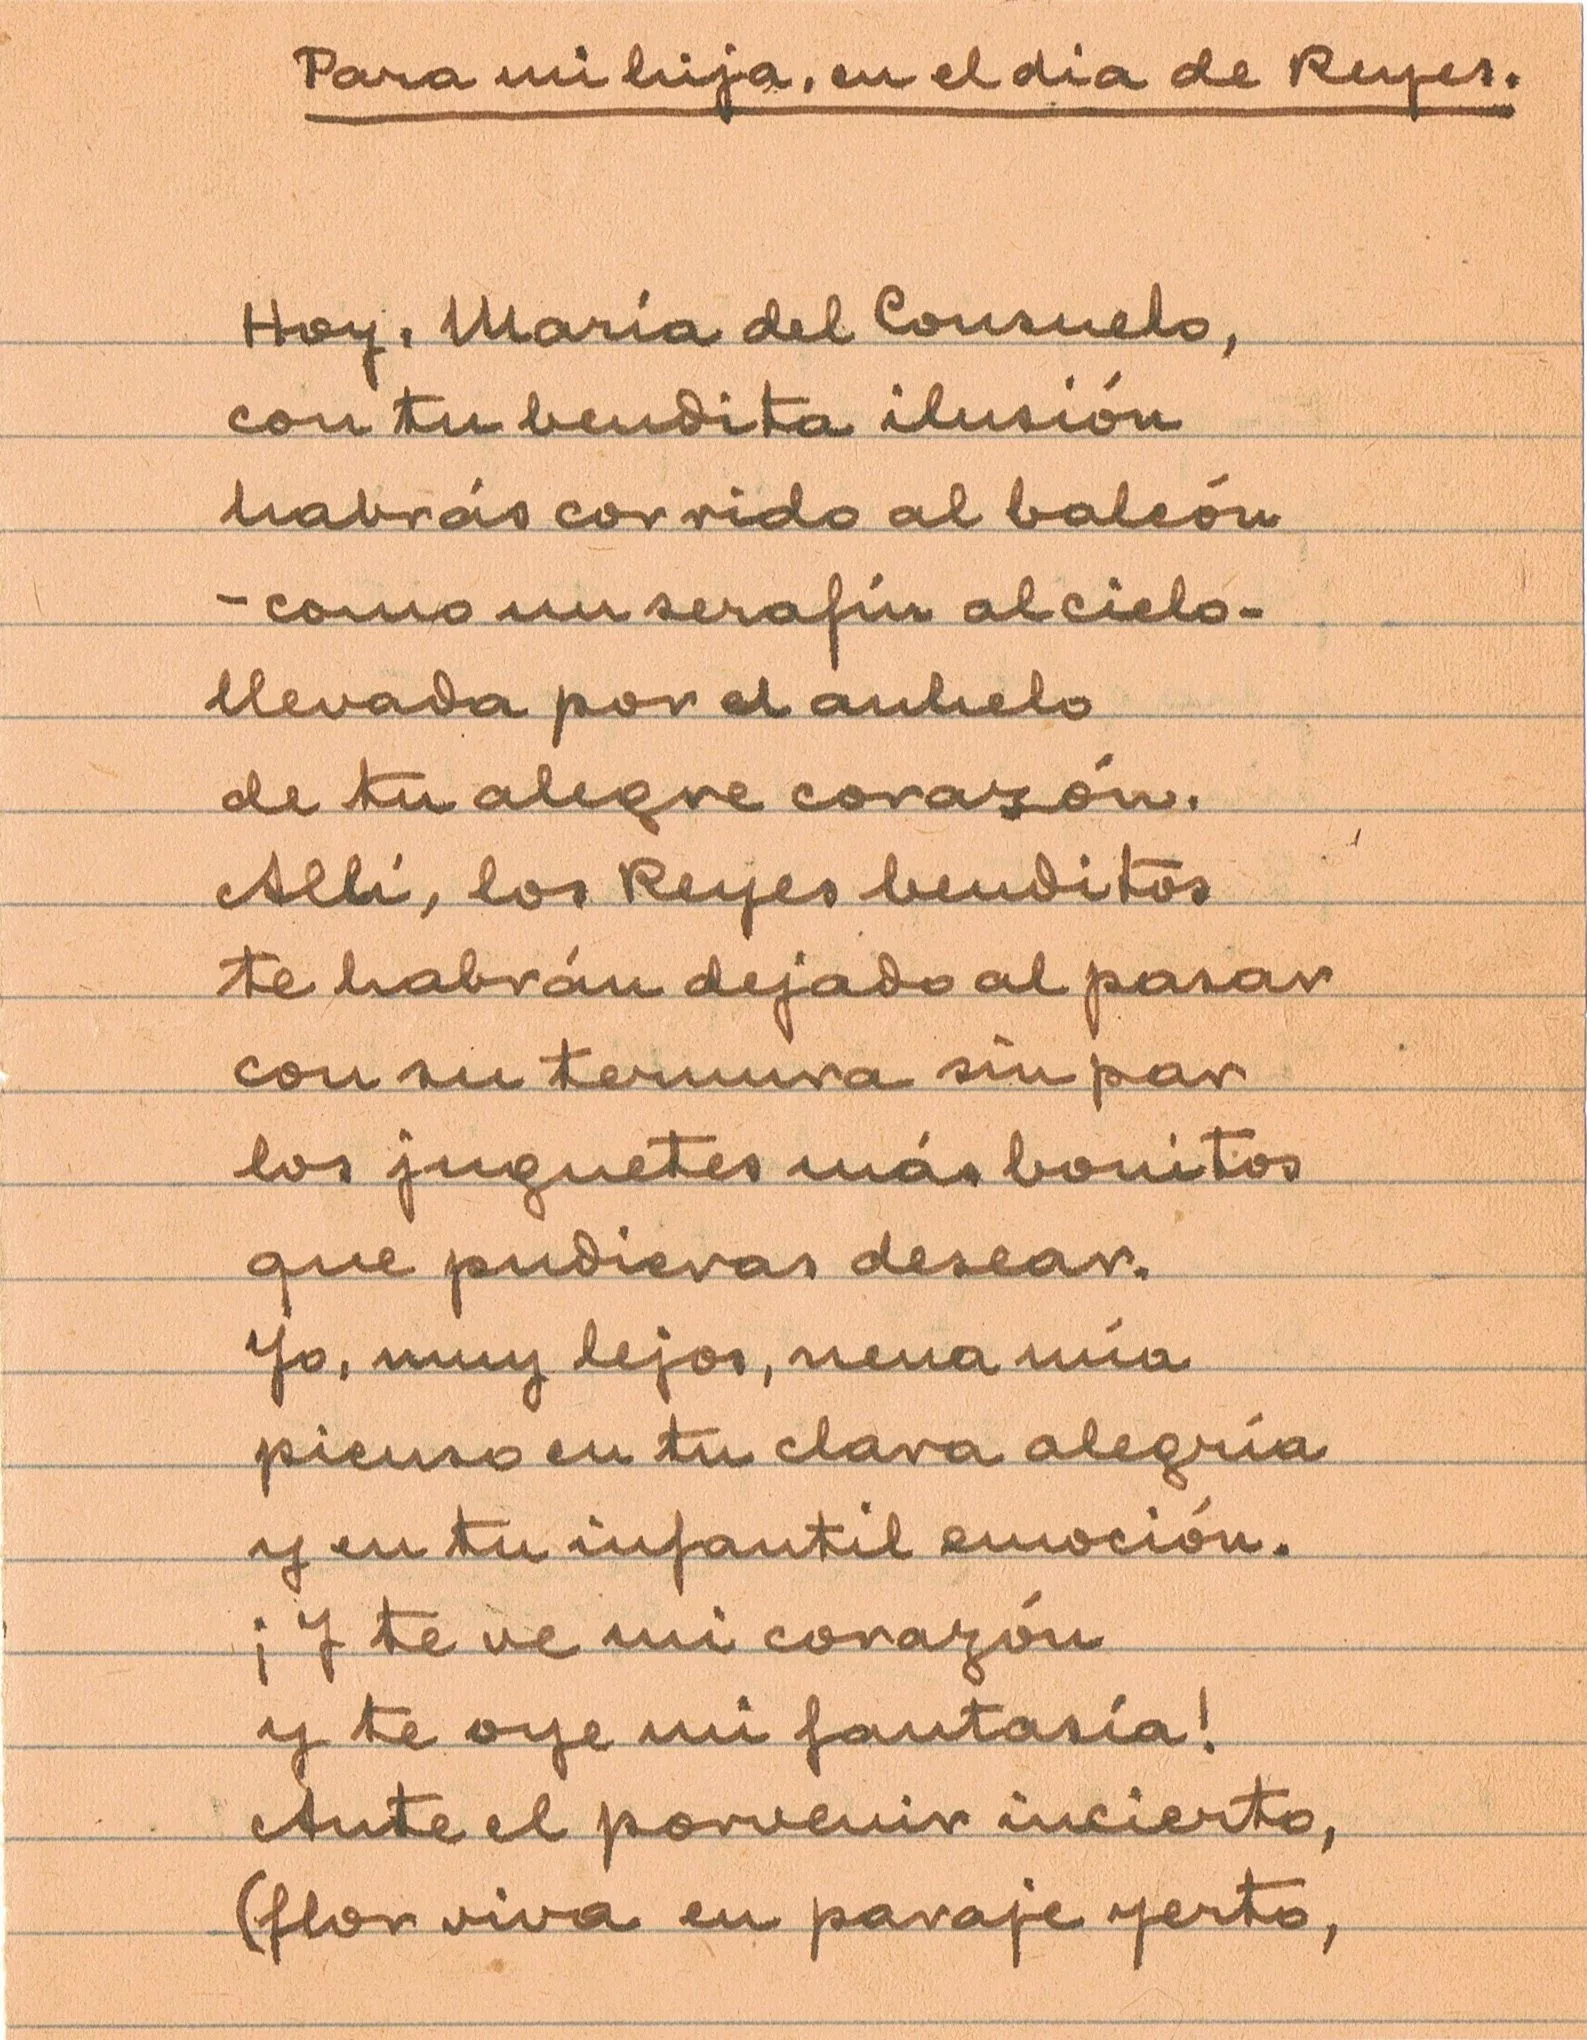 Para mi hija, en el dia de Reyes.
Hoy, María del Consuelo,
con tu bendita ilusión
habrás corrido al balcón
-como un serafín al cielo-
llevada por el anhelo
de tu alegre corazón.
Allí, los Reyes benditos
te habrán dejado al pasar
con su ternura sin par
los juguetes más bonitos
que pudieras desear.
Yo, muy lejos, nena mía
pienso en tu clara alegría
y en tu infantil emoción.
¡Y te ve mi corazón
y te oye mi fantasía!
Ante el porvenir incierto,
(flor viva en paraje yerto,